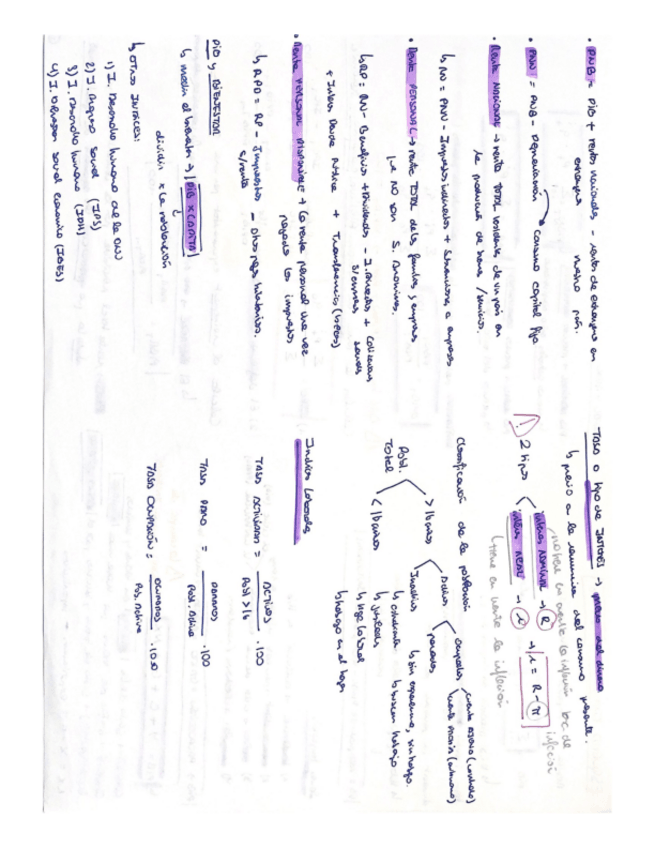 • PNB = PIB + rentas nacionales - rentas de extranjeros en
extranjero nuestro país.
• PNN = PNB - Depreciación → consumo capital fijo
• Renta NACIONAL → renta TOTAL residente de un país en
la producción de bienes / servicios.
↳ RN = PNN - Impuestos indirectos + Subvenciones a empresas
• Renta PERSONAL → renta TOTAL de las familias y empresas
que no son S. Anónimas.
↳ RP = RN - Beneficios + Dividendos - I. directos + Cotizaciones
s/ sociales
+ Interés Deuda Pública + Transferencias (becas)
• Renta PERSONAL DISPONIBLE → la renta personal una vez
pagado los impuestos
↳ RPD = RP - Impuestos - otros pagos tributarios.
s/ renta
PIB y BIENESTAR
↳ medir el bienestar → PIB x CÁPITA
dividir x la población
↳ OTROS ÍNDICES:
1) I. Desarrollo humano de la ONU
2) I. Progreso Social (IPS)
3) I. Desarrollo humano (IDH)
4) I. Bienestar social económico (IBES)
TASA o tipo de INTERÉS → precio del dinero
↳ precio a la renuncia del consumo presente.
no tiene en cuenta la inflación
! 2 tipos
interés NOMINAL → R
interés REAL → r
→ r = R - π
inflación
(tiene en cuenta la inflación
Clasificación de la población
Pobl. TOTAL
> 16 años
< 16 años
Activos
ocupados
cuenta ajena
parados
↳ sin experiencia, sin trabajo.
↳ buscan trabajo
Inactivos
↳ estudiantes
↳ jubilados
↳ trabajo en el hogar
Índices Laborales
TASA ACTIVIDAD = ACTIVOS / Pobl > 16 · 100
TASA PARO = PARADOS / Pobl. Activa · 100
TASA OCUPACIÓN = OCUPADOS / Pob. Activa · 100